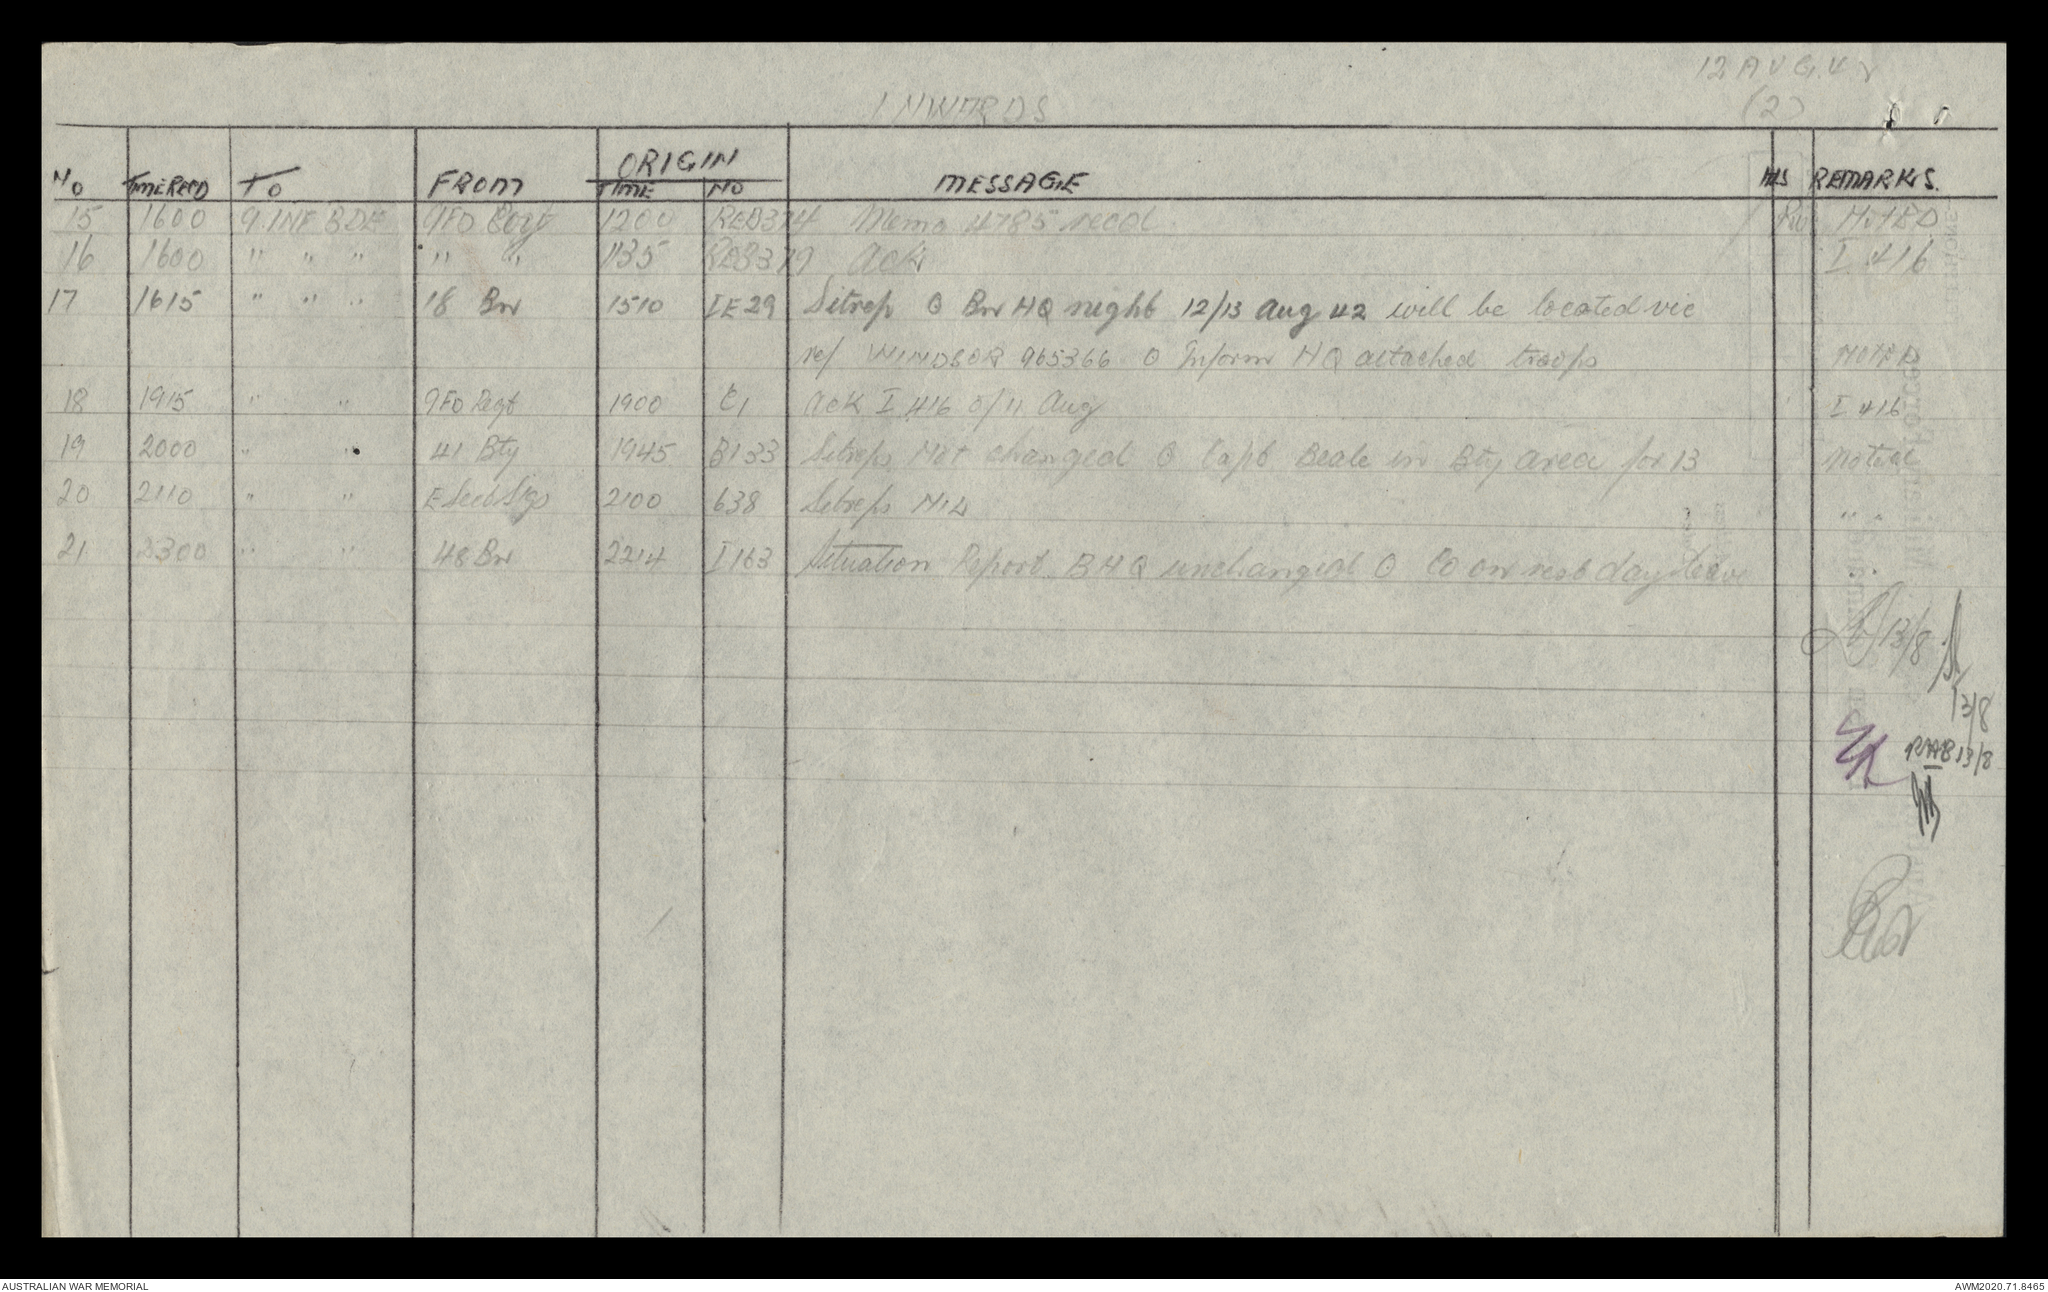 12 AUG. 42
INWARDS (2)
ORIGIN
No TIME RECD TO FROM TIME NO MESSAGE REMARKS.
15 1600 9.INF BDE 9FD Regt 1200 REB374 Memo 4785 recd NOTED
16 1600 " " " " " 1135 REB379 Ack I 416
17 1615 " " " 18 Bn 1510 IE29 Sitrep O Bn HQ night 12/13 Aug 42 will be located vic
ref WINDSOR 965366 O Inform HQ attached troops NOTED
18 1915 " " 9FD Regt 1900 C1 Ack I 416 of 11 Aug I 416
19 2000 " " 41 Bty 1945 B133 Sitreps Not changed O Capt Beale in Bty area for 13 Noted
20 2110 " " E Sec Sigs 2100 638 Sitreps NIL " "
21 2300 " " 48 Bn 2214 I163 Situation Report BHQ unchanged O Co on rest day leave
13/8
13/8
RAB 13/8
AUSTRALIAN WAR MEMORIAL AWM2020.71.8465